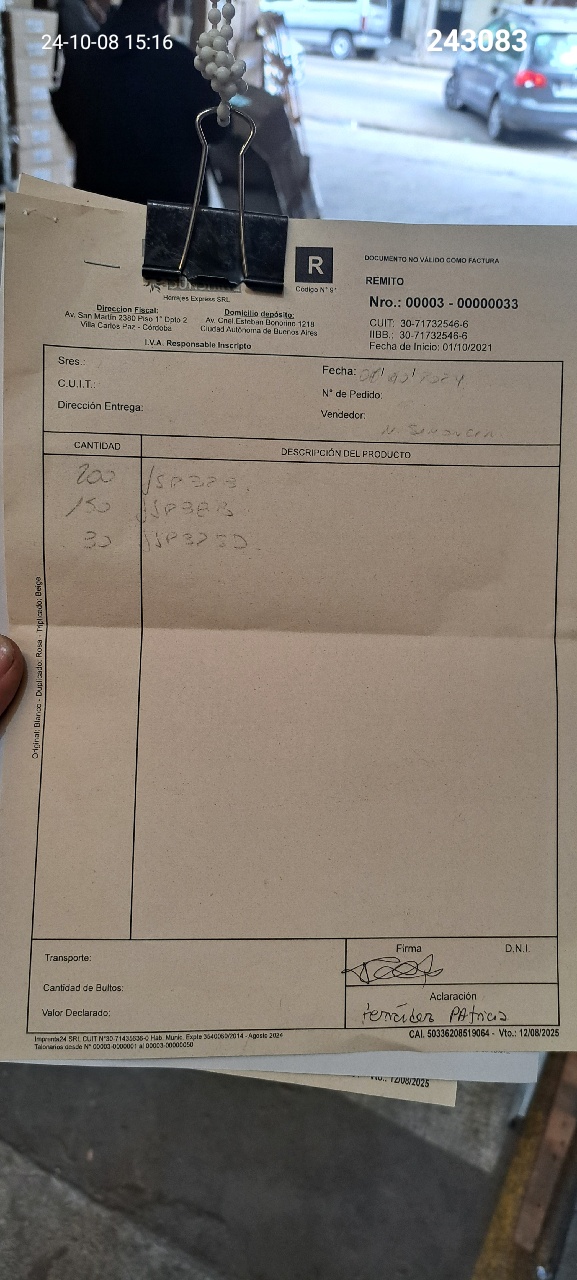 24-10-08 15:16
243083
R
Código N° 91
DOCUMENTO NO VÁLIDO COMO FACTURA
REMITO
Nro.: 00003 - 00000033
CUIT: 30-71732546-6
IIBB.: 30-71732546-6
Fecha de Inicio: 01/10/2021
Herrajes Express SRL
Direccion Fiscal:
Av. San Martin 2380 Piso 1° Dpto 2
Villa Carlos Paz - Córdoba
Domicilio depósito:
Av. Cnel Esteban Bonorino 1218
Ciudad Autónoma de Buenos Aires
I.V.A. Responsable Inscripto
Sres.:
C.U.I.T.:
Dirección Entrega:
Fecha: 08/10/2024
N° de Pedido:
Vendedor:
CANTIDAD
DESCRIPCIÓN DEL PRODUCTO
200
150
30
Original: Blanco - Duplicado: Rosa - Triplicado: Beige
Transporte:
Cantidad de Bultos:
Valor Declarado:
Firma
D.N.I.
Aclaración
Patricia
Imprenta24 SRL CUIT N°30-71435636-0 Hab. Munic. Expte 3540060/2014 - Agosto 2024
Talonarios desde N° 00003-00000001 al 00003-00000050
CAI. 50336208519064 - Vto.: 12/08/2025
Vto.: 12/08/2025